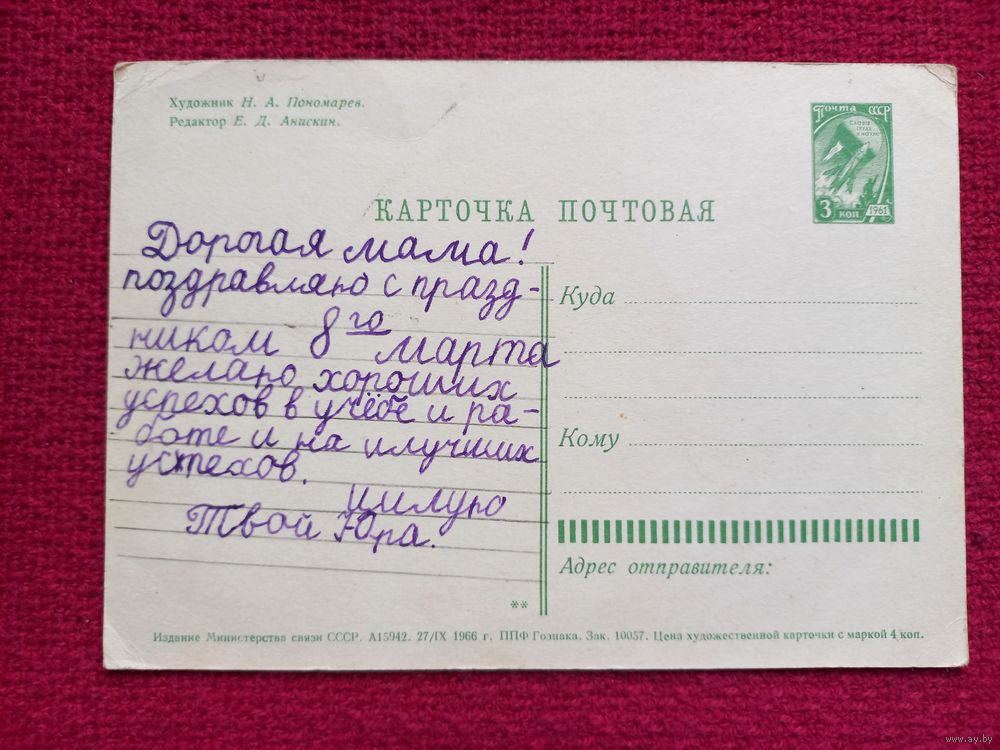 Художник Н. А. Пономарев.
Редактор Е. Д. Анискин.
Почта СССР
Слава
труду
и науке
3 коп 1961
КАРТОЧКА ПОЧТОВАЯ
Дорогая мама!
поздравляю с празд-
ником 8го марта
желаю хороших
успехов в учёбе и ра-
боте и на илучших
успехов.
цилую
Твой Юра.
Куда
Кому
Адрес отправителя:
**
Издание Министерства связи СССР. А15942. 27/IX 1966 г. ППФ Гознака. Зак. 10057. Цена художественной карточки с маркой 4 коп.
www.ay.by